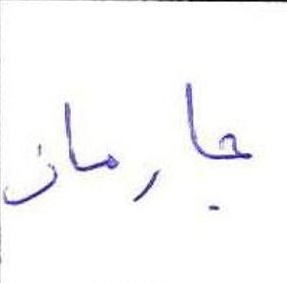 جارمان